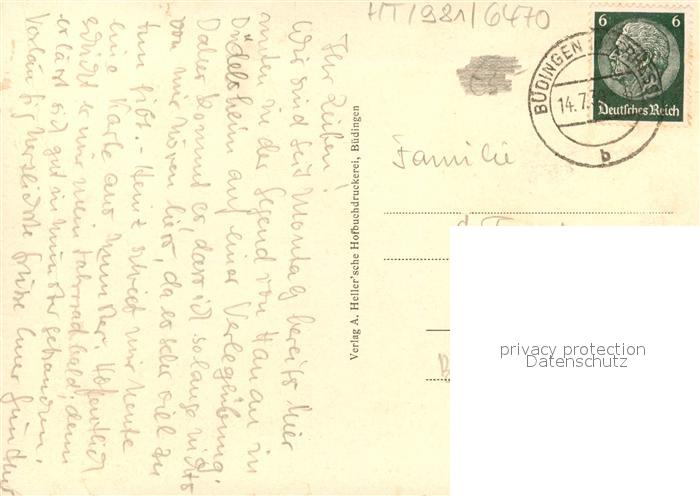 HT/981/6470
6 6
Deutsches Reich
BÜDINGEN
14.7.
b
Familie
Verlag A. Heller'sche Hofbuchdruckerei, Büdingen
privacy protection
Datenschutz
Ihr Lieben!
Wir sind seit Montag bereits hier
mitten in der Gegend von Hanau in
Düdelsheim auf einer Verlegübung.
Daher kommt es, dass ich solange nichts
von mir hören liess, da es sehr viel zu
tun gibt. - Heinz schreibt mir heute
eine Karte aus Münster. Hoffentlich
schickt er mir mein Fahrrad bald, denn
er lässt sich gut in Münster gebrauchen.
Vorläufig herzlichste Grüße Euer Günther